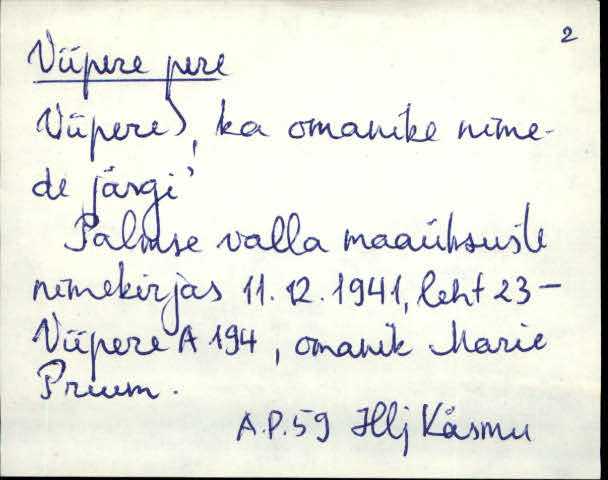 2
Viipere pere
Viipere), ka omanike nime-
de järgi
Palmse valla maaüksuste
nimekirjas 11.12.1941, leht 23 –
Viipere A 194, omanik Marie
Pruum.
A.P.59 Hlj Käsmu